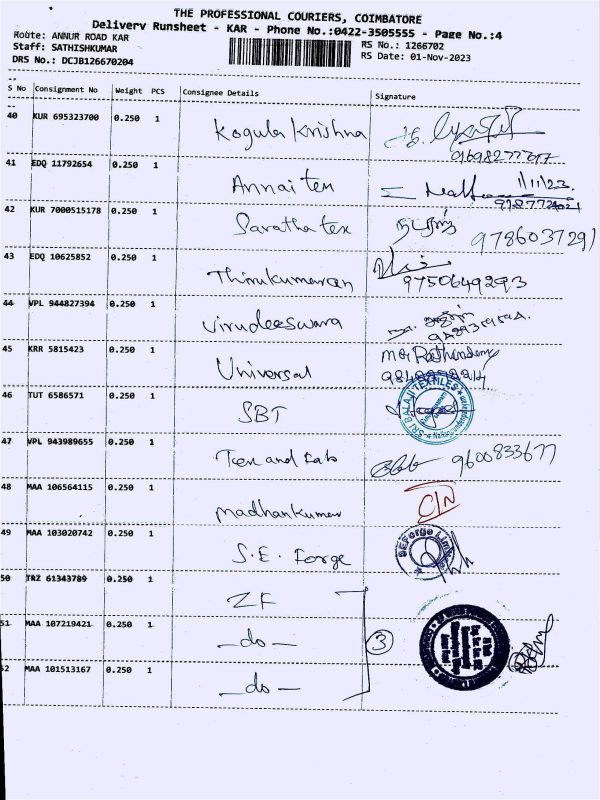 THE PROFESSIONAL COURIERS, COIMBATORE
Delivery Runsheet - KAR - Phone No.:0422-3505555 - Page No.:4
Route: ANNUR ROAD KAR
RS No.: 1266702
Staff: SATHISHKUMAR
RS Date: 01-Nov-2023
DRS No.: DCJB126670204
S No Consignment No Weight PCS Consignee Details Signature
40 KUR 695323700 0.250 1 Kogula Krishna
41 EDQ 11792654 0.250 1 Annai tex 1/11/23
42 KUR 7000515178 0.250 1 Saratha tex நடராஜ் 9786037291
43 EDQ 10625852 0.250 1 Thirukumaran 9750649293
44 VPL 944827394 0.250 1 Virudeeswara
45 KRR 5815423 0.250 1 Universal
46 TUT 6586571 0.250 1 SBT SRI BALAJI TEXTILES
47 VPL 943989655 0.250 1 Tex and Fab 9600833677
48 MAA 106564115 0.250 1 Madhankumar C/N
49 MAA 103020742 0.250 1 S.E. Forge
50 TRZ 61343789 0.250 1 ZF
51 MAA 107219421 0.250 1 -do- 3
52 MAA 101513167 0.250 1 -do-